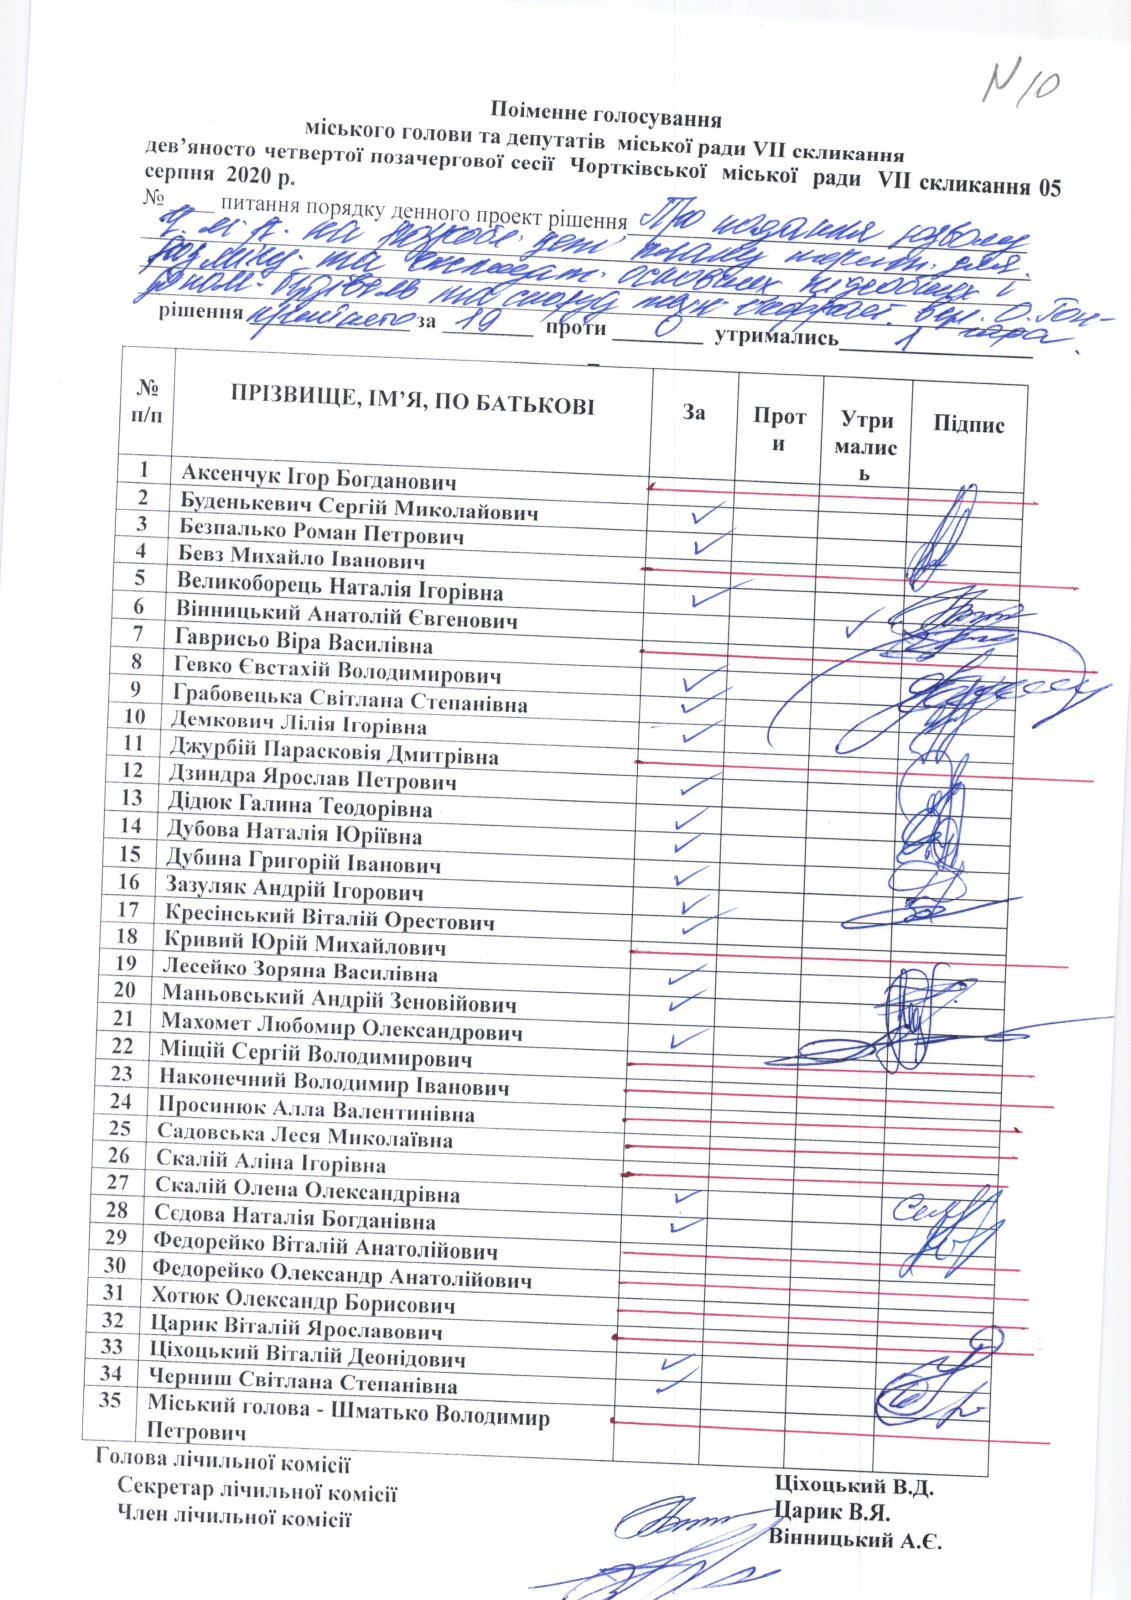 N 10
Поіменне голосування
міського голови та депутатів міської ради VII скликання
дев’яносто четвертої позачергової сесії Чортківської міської ради VII скликання 05
серпня 2020 р.
№ ____ питання порядку денного проект рішення Про надання дозволу
та основних
та споруд вул. О. Гон-
чара.
рішення прийнято за 19 проти 0 утримались 1
№ п/п ПРІЗВИЩЕ, ІМ’Я, ПО БАТЬКОВІ За Проти Утримались Підпис
1 Аксенчук Ігор Богданович
2 Буденькевич Сергій Миколайович
3 Безпалько Роман Петрович
4 Бевз Михайло Іванович
5 Великоборець Наталія Ігорівна
6 Вінницький Анатолій Євгенович
7 Гаврисьо Віра Василівна
8 Гевко Євстахій Володимирович
9 Грабовецька Світлана Степанівна
10 Демкович Лілія Ігорівна
11 Джурбій Парасковія Дмитрівна
12 Дзиндра Ярослав Петрович
13 Дідюк Галина Теодорівна
14 Дубова Наталія Юріївна
15 Дубина Григорій Іванович
16 Зазуляк Андрій Ігорович
17 Кресінський Віталій Орестович
18 Кривий Юрій Михайлович
19 Лесейко Зоряна Василівна
20 Маньовський Андрій Зеновійович
21 Махомет Любомир Олександрович
22 Міщій Сергій Володимирович
23 Наконечний Володимир Іванович
24 Просинюк Алла Валентинівна
25 Садовська Леся Миколаївна
26 Скалій Аліна Ігорівна
27 Скалій Олена Олександрівна
28 Сєдова Наталія Богданівна
29 Федорейко Віталій Анатолійович
30 Федорейко Олександр Анатолійович
31 Хотюк Олександр Борисович
32 Царик Віталій Ярославович
33 Ціхоцький Віталій Деонідович
34 Черниш Світлана Степанівна
35 Міський голова - Шматько Володимир
Петрович
Голова лічильної комісії Ціхоцький В.Д.
Секретар лічильної комісії Царик В.Я.
Член лічильної комісії Вінницький А.Є.